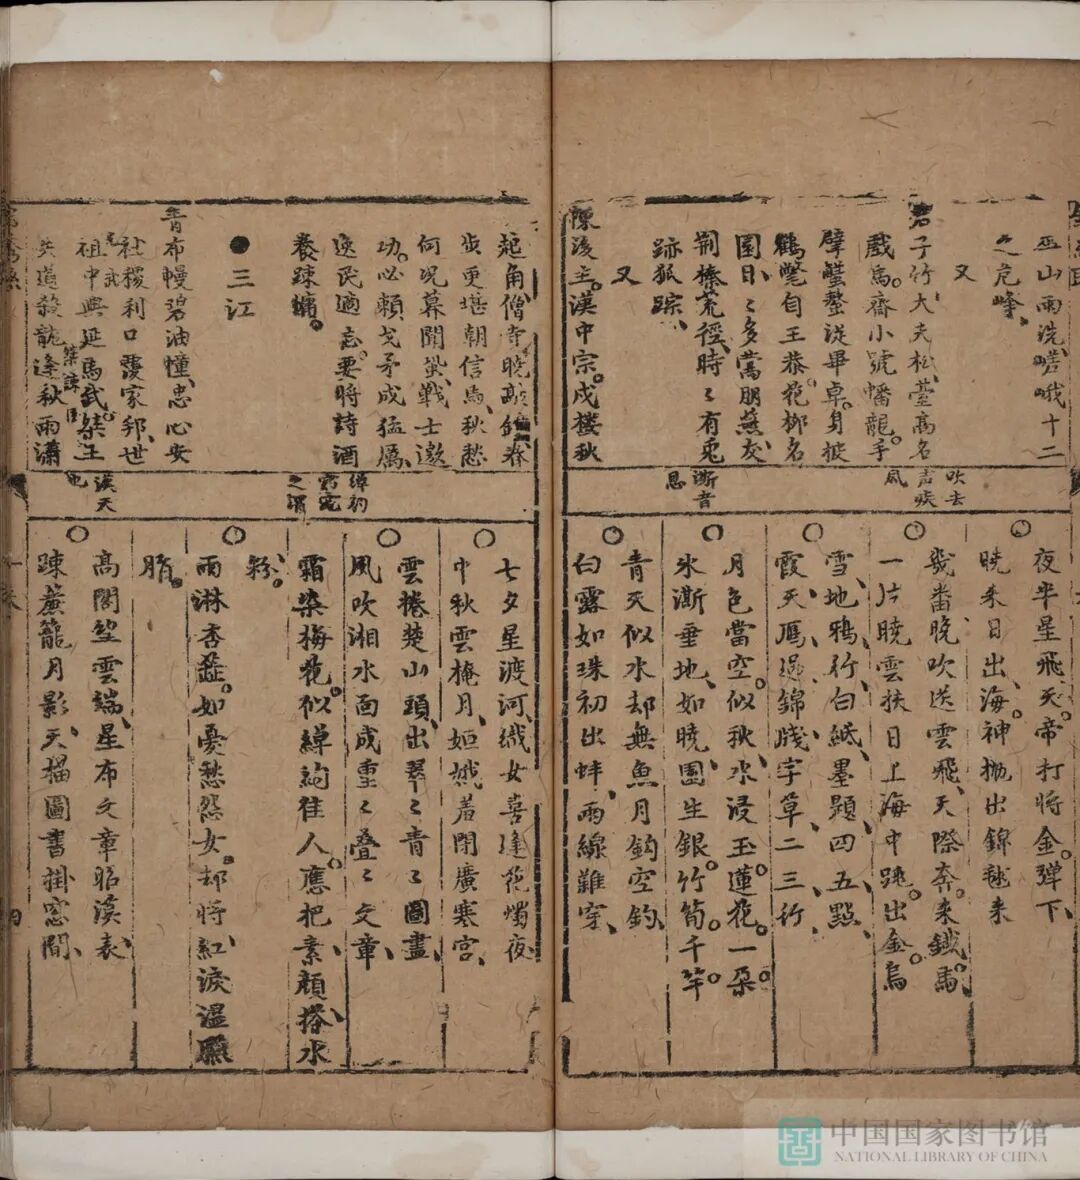 巫山雨洗嵯峨十二
之危峰
又
君子竹大夫松臺高名
戲馬齋小號蟠龍手
擘蟹螯從畢卓身披
鶴氅自王恭花柳名
園日〻多蒿朋蕪友
荆榛荒徑時〻有兎
跡狐踪
又
陳後主漢中宗戍樓秋
吹去
声疾
風
澌音
思
夜半星飛天帝打將金彈下
曉来日出海神抛出錦毬来
幾番晚吹送雲飛天際奔来鐵馬
一片曉雲扶日上海中跳出金烏
雪地鴉行白紙墨題四五點
霞天鴈過錦牋字草二三行
月色當空似秋水浸玉蓮花一朶
氷澌垂地如曉園生銀竹筍千竿
青天似水却無魚月鈎空釣
白露如珠初出蚌雨線難穿
起角僧寺曉敲鐘春
步更堪朝信馬秋愁
何况暮聞蛩戰士邀
功必頼戈矛成猛厲
逸民適志要將詩酒
養踈慵
●三江
青布幔碧油幢忠心安
社稷利口覆家邦世
祖中興延馬武桀王
失道殺龍逄秋雨瀟
綽約
窈窕
之謂
漢天
也
七夕星渡河織女喜逢花燭夜
中秋雲掩月姮娥羞閉廣寒宮
雲捲楚山頭出翠〻青〻圖畫
風吹湘水面成重〻叠〻文章
霜染梅花似綽約佳人應把素顔搽水
粉
雨淋杏蕋如憂愁怨女却將紅淚温臙
䐉
高閣坐雲端星布文章昭漢表
踈簾籠月影天榻圖書掛窓間
中国国家图书馆
NATIONAL LIBRARY OF CHINA